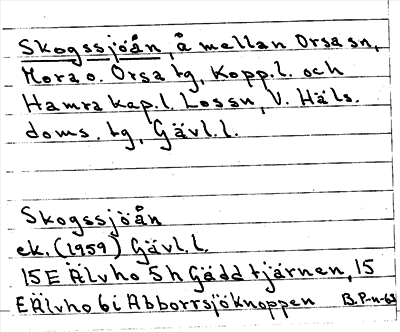 Skogssjöån, å mellan Orsa sn,
Mora o. Orsa tg, Kopp.l. och
Hamra kap.l. Lossn, V. Häls.
doms. tg, Gävl.l.
Skogssjöån
ek. (1959) Gävl.l.
15E Älvho 5h Gäddtjärnen, 15
E Älvho 6i Abborrsjöknoppen B.P-n-63